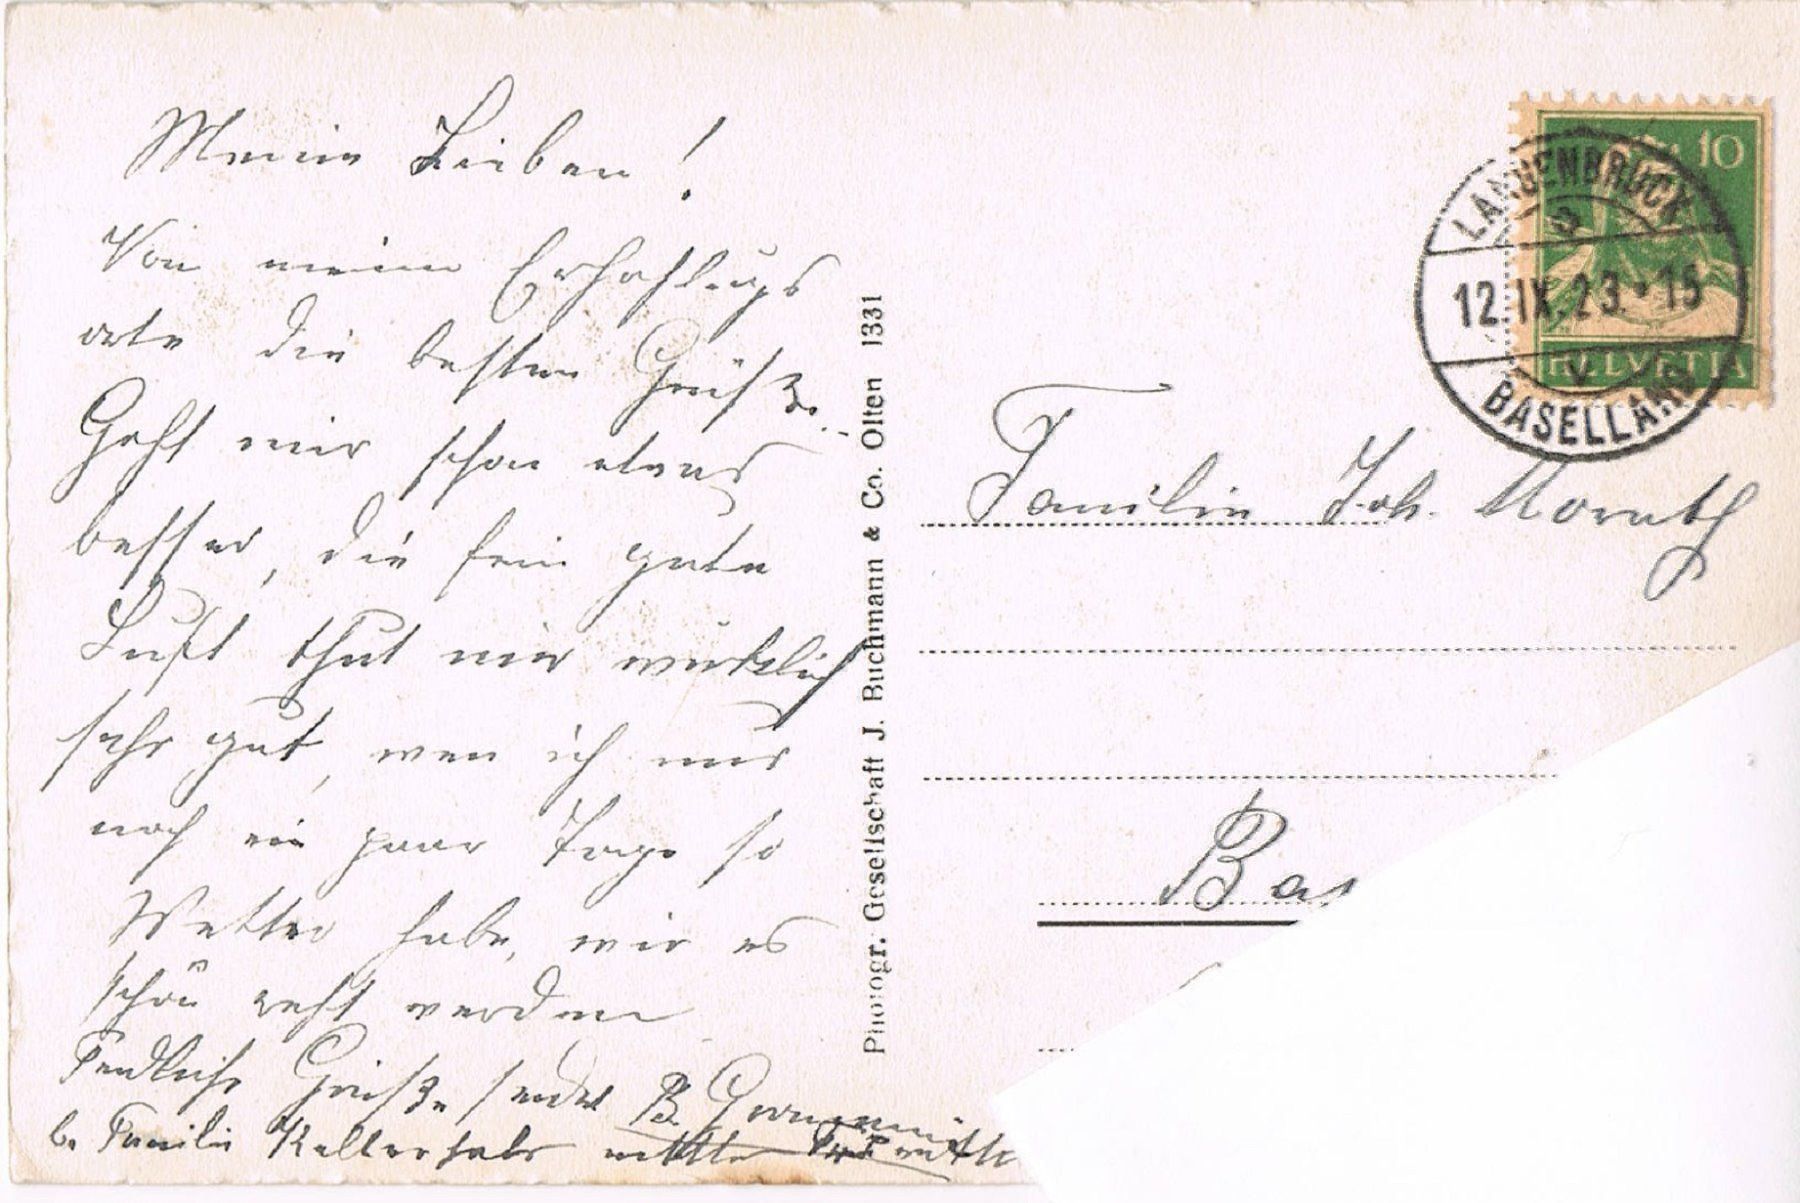 Meine Lieben!
Von meim Erhohlugs
orte die besten Grüße.
Geht mir schon etwas
besser, die fein gute
Luft thut mir wirklich
sehr gut, wen ich nur
noch ein paar Tage so
Wetter habe, wir es
schön recht werden
Grüße sendet B.
b. Familie Kellerhals
Photogr. Gesellschaft J. Buchmann & Co. Olten 1331
10
HELVETIA
LANGENBRUCK
12.IX.23.-15
BASELLAND
Familie Joh. Morath
Bas